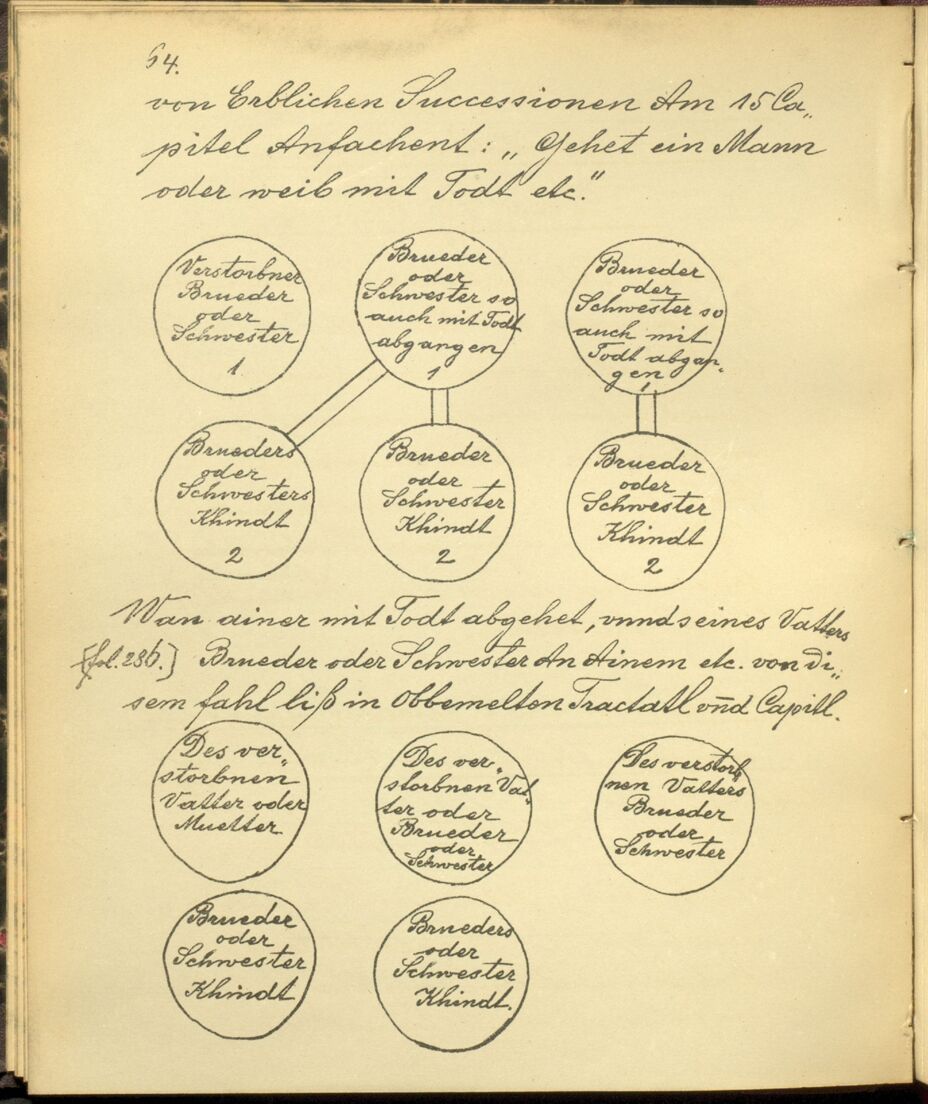 54.
von Erblichen Successionen Am 15 Ca„
pitel Anfachent: „Gehet ein Mann
oder weib mit Todt etc."
Verstorbner
Brueder
oder
Schwester
1
Brueder
oder
Schwester so
auch mit Todt
abgangen
1
Brueder
oder
Schwester so
auch mit
Todt abgan„
gen
1
Brueders
oder
Schwesters
Khindt
2
Brueder
oder
Schwester
Khindt
2
Brueder
oder
Schwester
Khindt
2
Wan ainer mit Todt abgehet, vnnd seines Vatters
[fol. 286.] Brueder oder Schwester An Ainem etc. von di„
sem fahl liß in Obbemelten Tractatl vn̄d Capitl.
Des ver„
storbnen
Vatter oder
Muetter
Des ver„
storbnen Vat„
ter oder
Brueder
oder
Schwester
Des verstorb„
nen Vatters
Brueder
oder
Schwester
Brueder
oder
Schwester
Khindt
Brueders
oder
Schwester
Khindt.